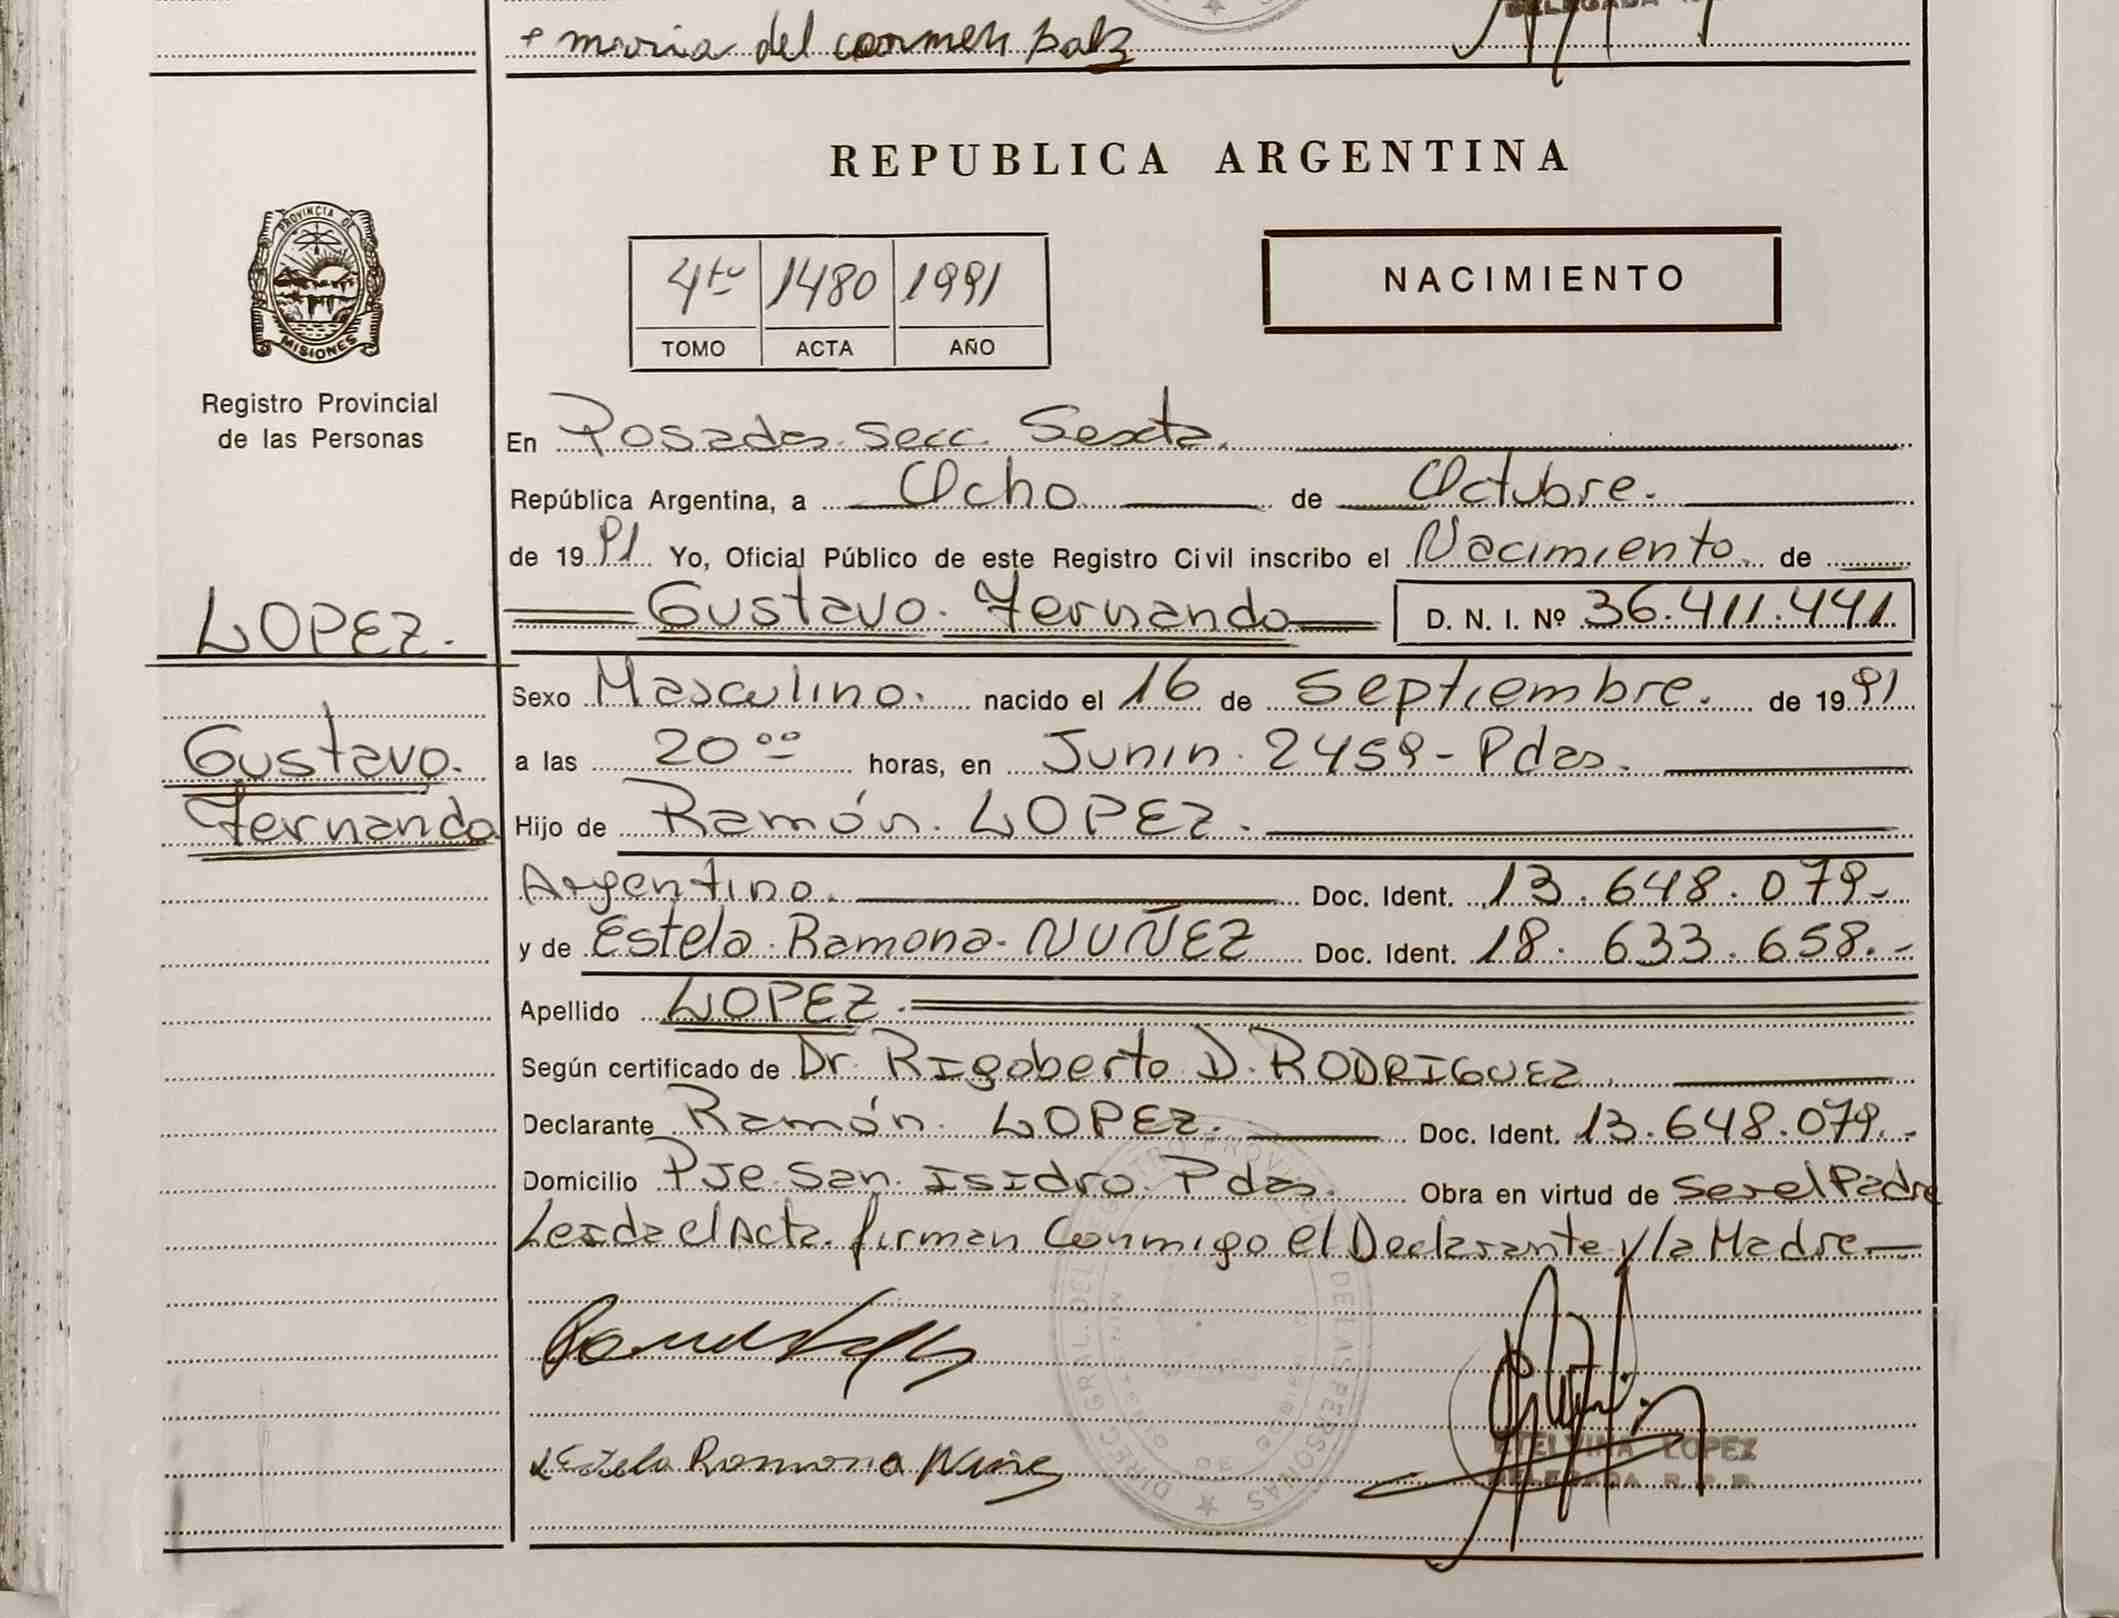 + maria del carmen
DELEGADA
PROVINCIA DE
MISIONES
Registro Provincial
de las Personas
LOPEZ.
Gustavo.
Fernando
REPUBLICA ARGENTINA
4to 1480 1991
TOMO ACTA AÑO
NACIMIENTO
En Posadas. Secc. Sexta.
República Argentina, a Ocho de Octubre.
de 19 91 Yo, Oficial Público de este Registro Civil inscribo el Nacimiento. de
Gustavo. Fernando D. N. I. Nº 36.411.441
Sexo Masculino. nacido el 16 de Septiembre. de 19 91
a las 20 00 horas, en Junin. 2459 - Pdas.
Hijo de Ramón. LOPEZ.
Argentino. Doc. Ident. 13.648.079.-
y de Estela. Ramona. NUÑEZ Doc. Ident. 18.633.658.-
Apellido LOPEZ.
Según certificado de Dr. Rigoberto D. RODRIGUEZ
Declarante Ramón. LOPEZ. Doc. Ident. 13.648.079.-
Domicilio Pje. San. Isidro. Pdas. Obra en virtud de Ser el Padre
Leida el Acta. firman Conmigo el Declarante y la Madre
Estela Ramona Nuñez
ETELVINA LOPEZ
DELEGADA R.P.P.
DIREC. GRAL. DEL REGISTRO PROVINCIAL DE LAS PERSONAS